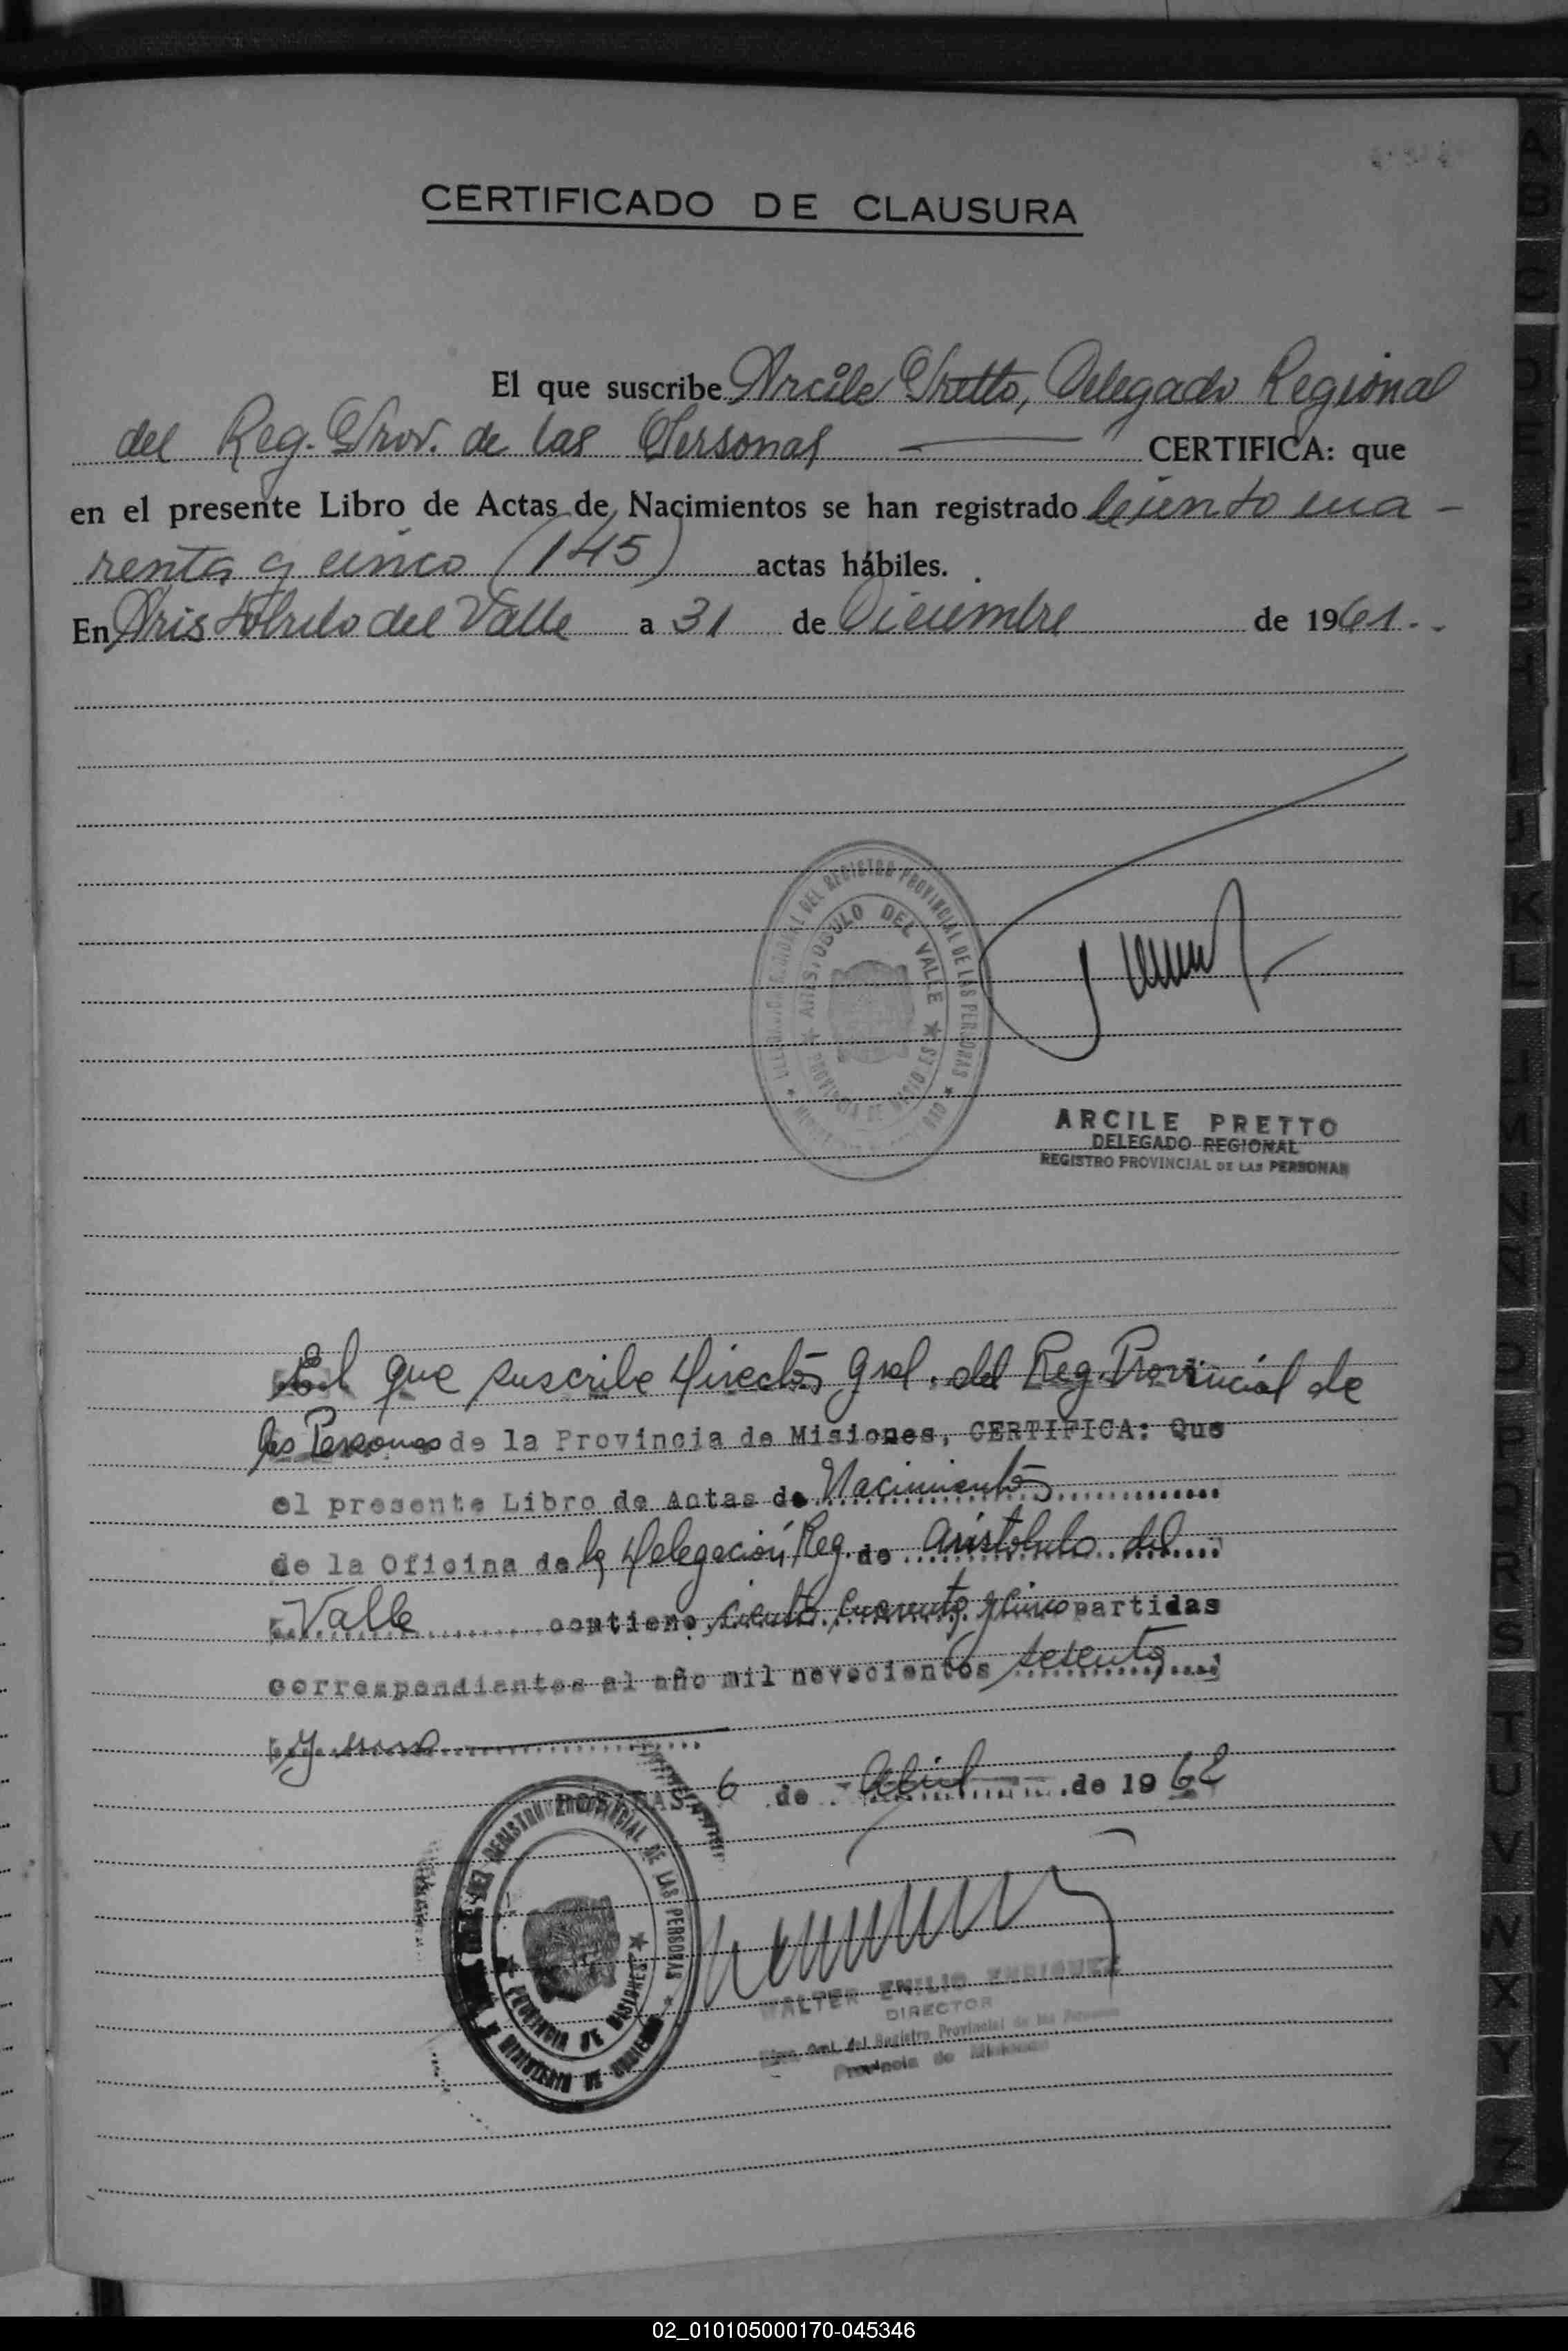 CERTIFICADO DE CLAUSURA
El que suscribe Arcile Pretto, Delegado Regional
del Reg. Prov. de las Personas CERTIFICA: que
en el presente Libro de Actas de Nacimientos se han registrado Ciento cua-
renta y cinco (145) actas hábiles.
En Aristobulo del Valle a 31 de Diciembre de 1961.
DEL REGISTRO PROVINCIAL DE LAS PERSONAS
ARISTOBULO DEL VALLE
ARCILE PRETTO
DELEGADO REGIONAL
REGISTRO PROVINCIAL DE LAS PERSONAS
El que suscribe Director Gral. del Reg. Provincial de
las Personas de la Provincia de Misiones, CERTIFICA: Que
el presente Libro de Actas de Nacimientos
de la Oficina de la Delegación Reg. de Aristobulo del
Valle contiene, ciento cuarenta y cinco partidas
correspondientes al año mil novecientos sesenta
y uno
POSADAS 6 de Abril de 1962
REGISTRO PROVINCIAL DE LAS PERSONAS
PROVINCIA DE MISIONES
MINISTERIO DE GOBIERNO
WALTER EMILIO ENRIQUEZ
DIRECTOR
Gral. del Registro Provincial de las Personas
Provincia de Misiones
A
B
C
D
E
H
I
J
K
L
M
N
O
P
Q
R
S
T
U
V
W
X
Y
Z
02_010105000170-045346